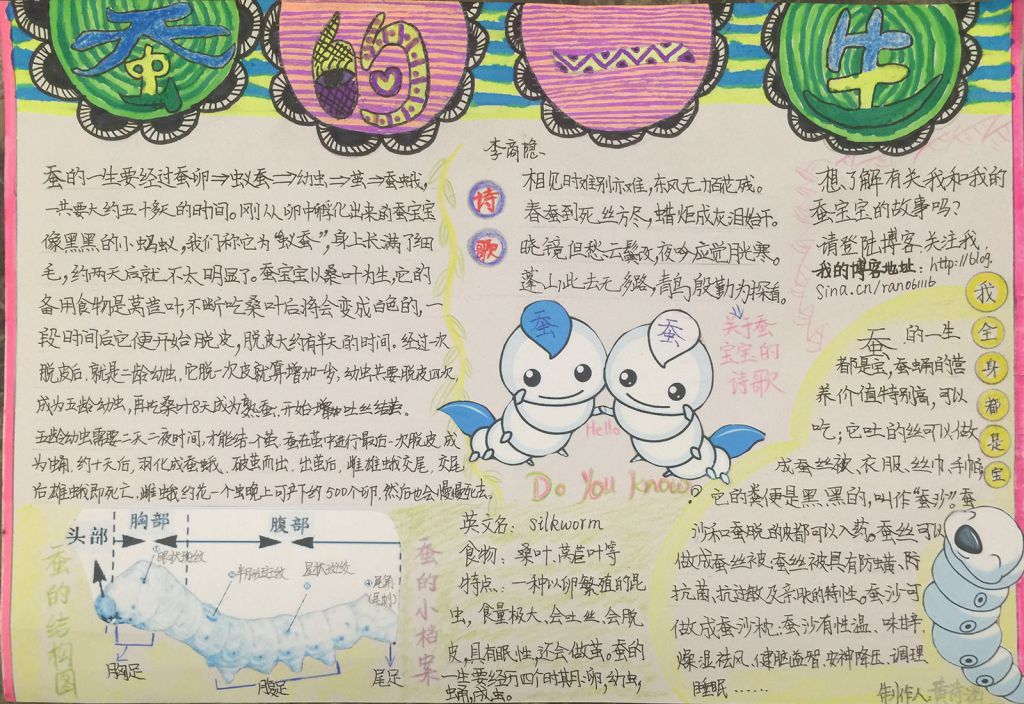 蚕的一生
蚕的一生要经过蚕卵⇒蚁蚕⇒幼虫⇒茧⇒蚕蛾,
一共要大约五十多天的时间。刚从卵中孵化出来的蚕宝宝
像黑黑的小蚂蚁,我们称它为"蚁蚕",身上长满了细
毛,约两天后就不太明显了。蚕宝宝以桑叶为生,它的
备用食物是莴苣叶,不断吃桑叶后将会变成白色的,一
段时间后它便开始脱皮,脱皮大约有半天的时间。经过一次
脱皮后,就是二龄幼虫,它脱一次皮就算增加一岁,幼虫共要脱皮四次,
成为五龄幼虫,再吃桑叶8天成为熟蚕,开始吐丝结茧。
五龄幼虫需要二天二夜时间,才能结一个茧,蚕在茧中进行最后一次脱皮,成
为蛹,约十天后,羽化成蚕蛾,破茧而出,出茧后,雌雄蛾交尾,交尾
后雄蛾即死亡,雌蛾约花一个晚上可产下约500个卵,然后也会慢慢死去。
蚕的结构图
头部
胸部
腹部
眼状斑纹
半月斑纹
星状斑纹
尾角
(尾刺)
胸足
腹足
尾足
诗歌
李商隐
相见时难别亦难,东风无力百花残。
春蚕到死丝方尽,蜡炬成灰泪始干。
晓镜但愁云鬓改,夜吟应觉月光寒。
蓬山此去无多路,青鸟殷勤为探看。
关于蚕
宝宝的
诗歌
蚕
蚕
Hello
Do You Know?
蚕的小档案
英文名:silkworm
食物:桑叶、莴苣叶等
特点:一种以卵繁殖的昆
虫,食量极大,会吐丝,会脱
皮,具有眠性,还会做茧。蚕的
一生要经历四个时期:卵,幼虫,
蛹,成虫。
想了解有关我和我的
蚕宝宝的故事吗?
请登陆博客关注我,
我的博客地址:http://blog.
sina.cn/ran06111b
我全身都是宝
蚕的一生
都是宝,蚕蛹的营
养价值特别高,可以
吃;它吐的丝可以做
成蚕丝被、衣服、丝巾、手帕。
它的粪便是黑黑的,叫作"蚕沙"。蚕
沙和蚕脱的皮都可以入药。蚕丝可以
做成蚕丝被,蚕丝被具有防螨、防
抗菌、抗过敏及亲肤的特性。蚕沙可
做成蚕沙枕,蚕沙有性温、味甘、
燥湿祛风、健脑益智、安神降压、调理
睡眠……
制作人:黄